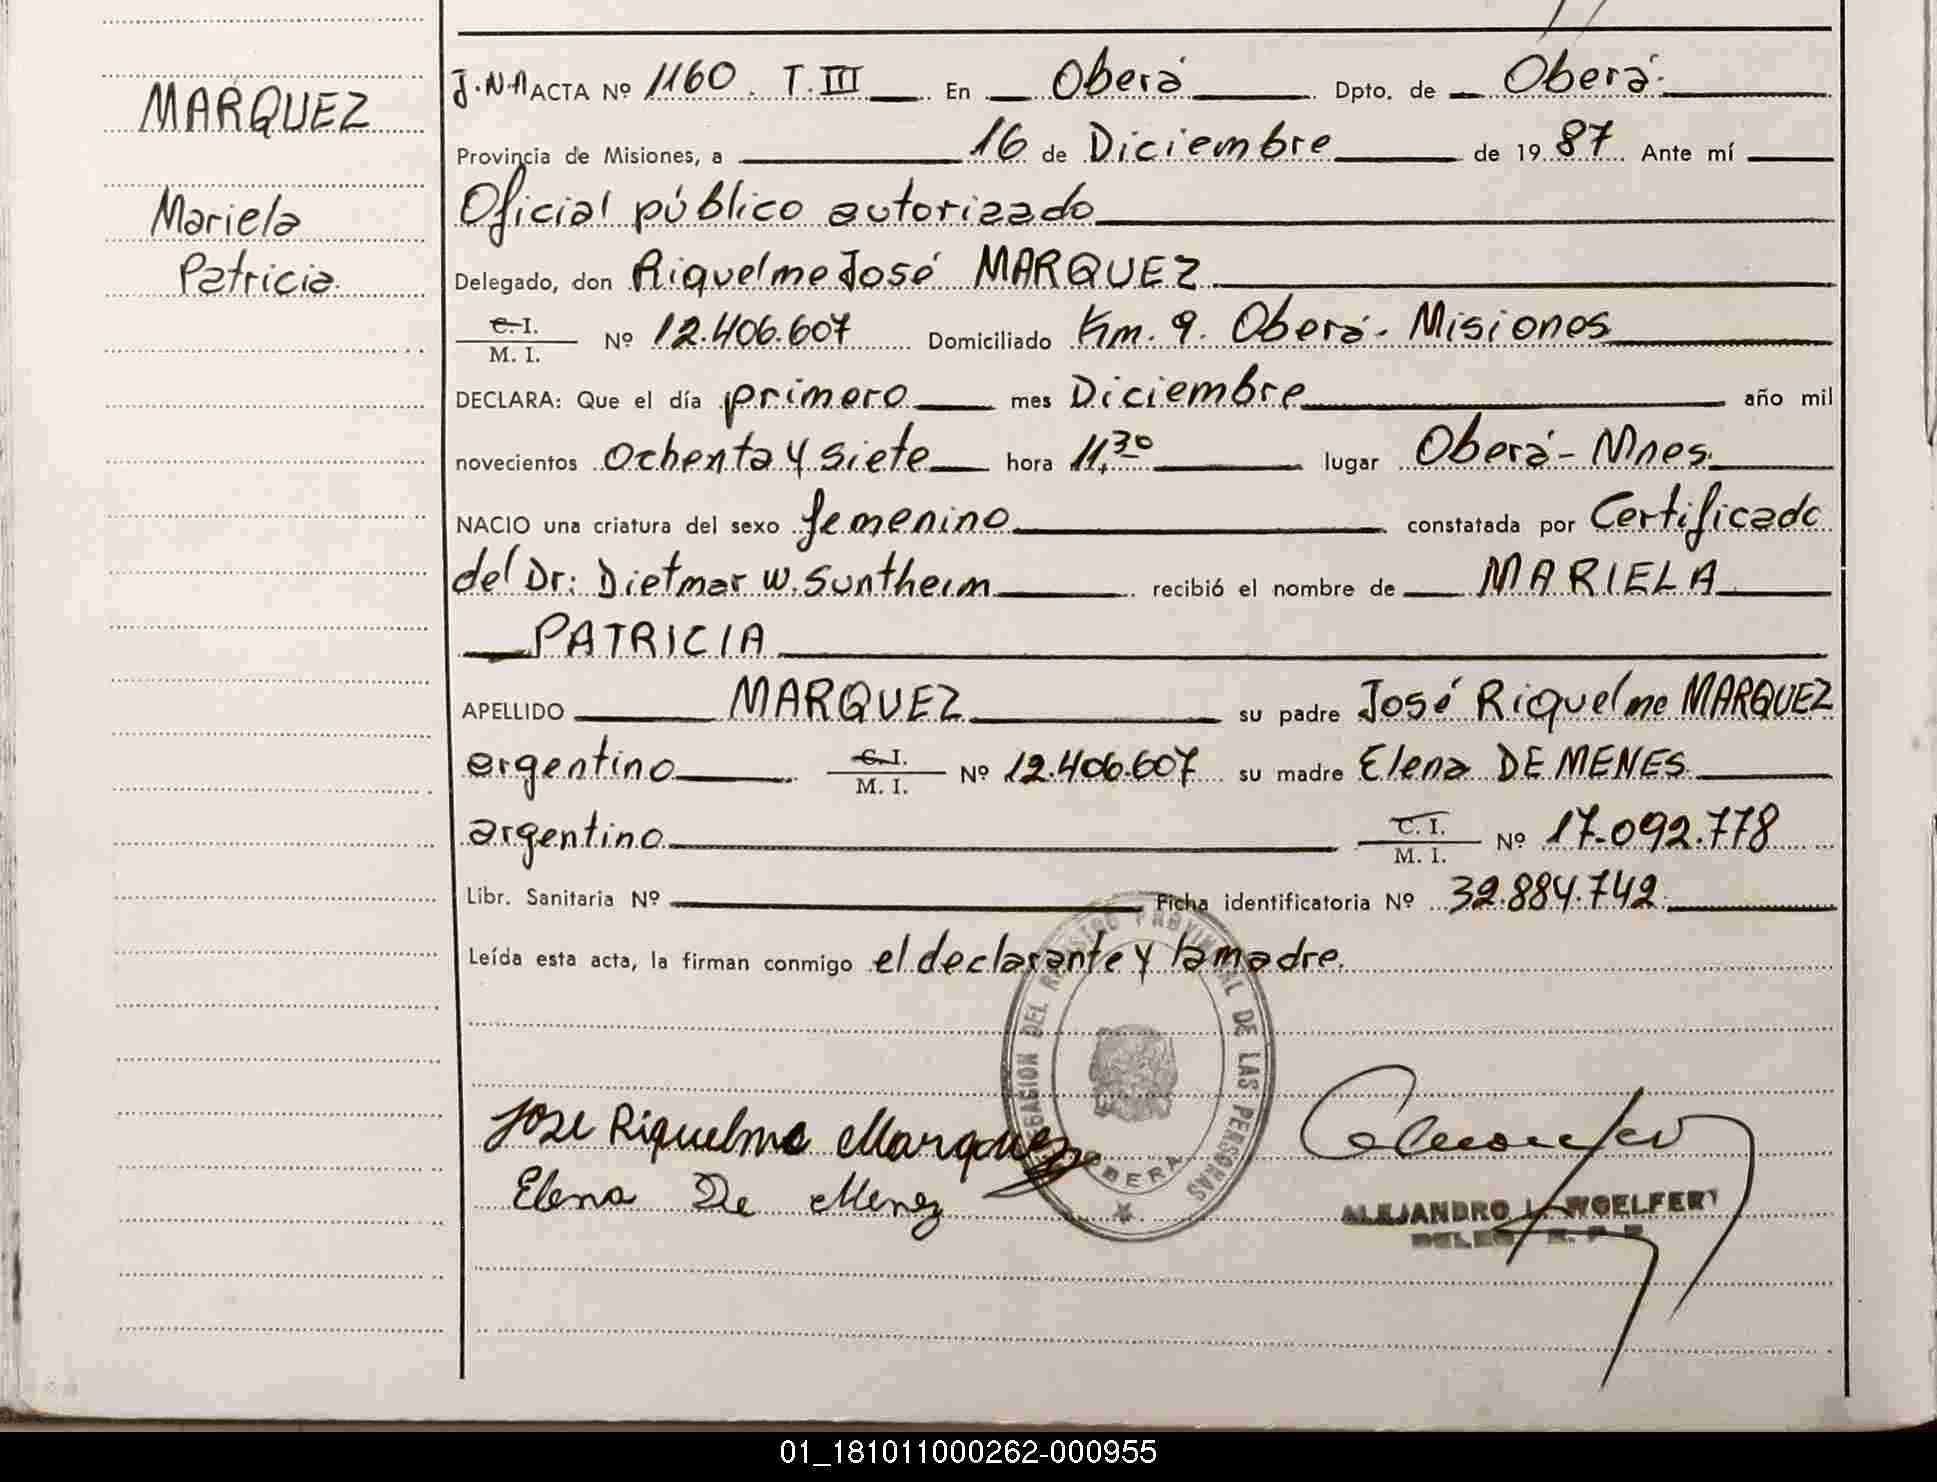 MARQUEZ
Mariela
Patricia.
J.N.A ACTA Nº 1160. T. III En Oberá Dpto. de Oberá.
Provincia de Misiones, a 16 de Diciembre de 1987 Ante mí
Oficial público autorizado
Delegado, don Riquelme José MARQUEZ
C. I. / M. I. Nº 12.406.607 Domiciliado Km. 9. Oberá - Misiones
DECLARA: Que el día primero mes Diciembre año mil
novecientos ochenta y siete hora 11,30 lugar Oberá - Mnes.
NACIO una criatura del sexo femenino constatada por Certificado
del Dr: Dietmar W. Suntheim recibió el nombre de MARIELA
PATRICIA
APELLIDO MARQUEZ su padre José Riquelme MARQUEZ
argentino C. I. / M. I. Nº 12.406.607 su madre Elena DE MENES
argentina C. I. / M. I. Nº 17.092.778
Libr. Sanitaria Nº Ficha identificatoria Nº 32.884.742.
Leída esta acta, la firman conmigo el declarante y la madre.
DELEGACION DEL REGISTRO PROVINCIAL DE LAS PERSONAS
OBERA
Jose Riquelme Marquez
Elena De Menez
ALEJANDRO L. WOELFERT
01_181011000262-000955